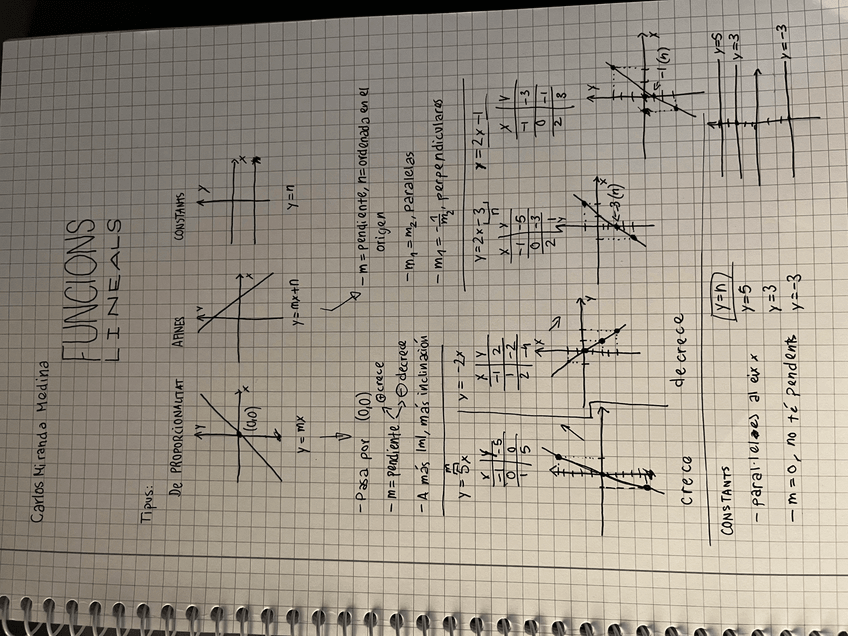 Carlos Miranda Medina
FUNCIONS
LINEALS
Tipus:
De PROPORCIONALITAT
y
x
(0,0)
y=mx
AFINES
y
x
y=mx+n
CONSTANTS
y
x
y=n
- Pasa por (0,0)
- m=pendiente ⊕ crece
⊖ decrece
- A más |m|, más inclinación
- m=pendiente, n=ordenada en el
origen
- m1=m2, paralelas
- m1=-1/m2, perpendiculares
m
y=5x
x y
-1 -5
0 0
1 5
crece
y=-2x
x y
-1 2
1 -2
2 -4
x
y
decrece
y=2x-3
n
x y
-1 -5
0 -3
2 1
y
x
-3(n)
y=2x-1
x y
-1 -3
0 -1
2 3
y
x
-1(n)
CONSTANTS
- paral·leles al eix x
- m=0, no té pendent
y=n
y=5
y=3
y=-3
y=5
y=3
y=-3